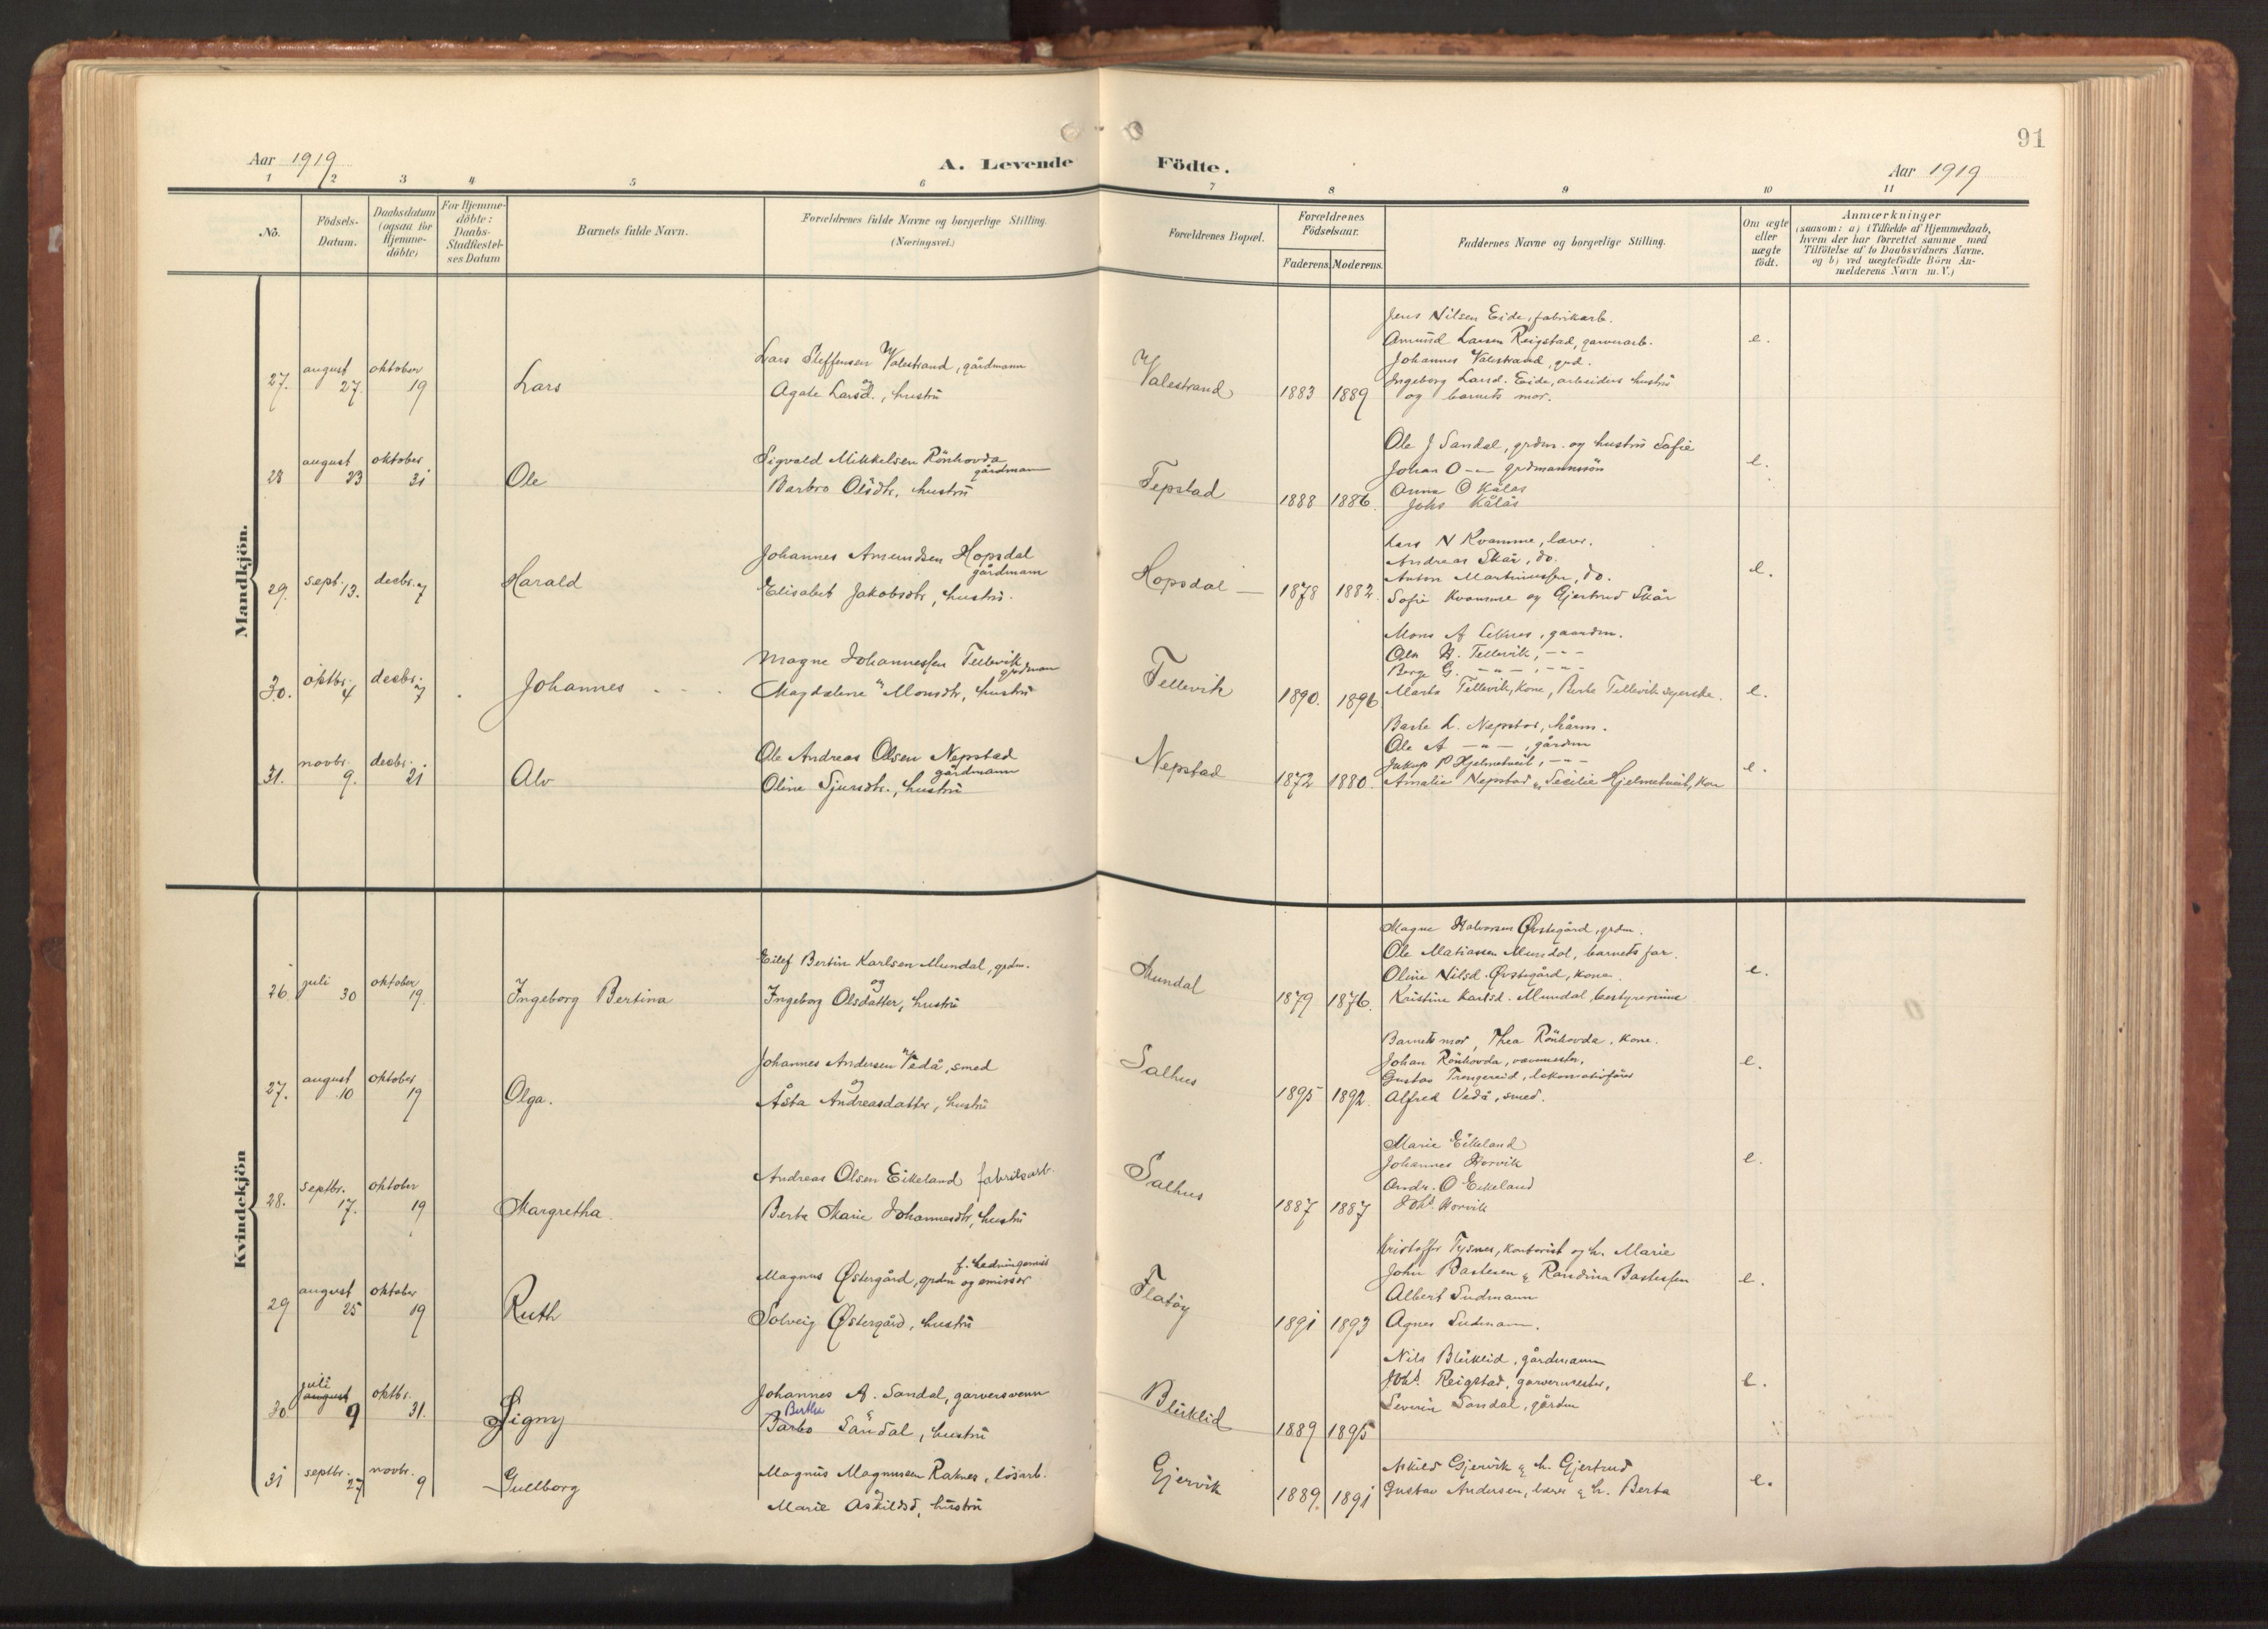 91
Aar 1919
A. Levende Födte.
Aar 1919
1 2 3 4 5 6 7 8 9 10 11
No.
Födsels-
Datum.
Daabsdatum
(ogsaa for
Hjemme-
döbte)
For Hjemme-
döbte:
Daabs-
Stadfæstel-
ses Datum
Barnets fulde Navn.
Forældrenes fulde Navne og borgerlige Stilling.
(Næringsvei.)
Forældrenes Bopæl.
Forældrenes
Födselsaar.
Faderens. Moderens.
Faddernes Navne og borgerlige Stilling.
Om ægte
eller
uægte
födt.
Anmærkninger
(saasom: a) i Tilfælde af Hjemmedaab,
hvem der har forrettet samme med
Tilföielse af to Daabsvidners Navne,
og b) ved uægtefödte Börn An-
melderens Navn m. V.)
Mandkjön.
27.
august
27.
oktober
19
Lars
Lars Steffensen Valestrand, gårdmann
og
Agate Larsd., hustru
Valestrand
1883 1889
Jens Nilsen Eide, fabrikarb.
Amund Larsen Reigstad, garverarb.
Johannes Valestrand, grd.
Ingeborg Larsd. Eide, arbeiders hustru
og barnets mor.
e.
28
august
23
oktober
31
Ole
Sigvald Mikkelsen Rönhovda
gårdmann
Barbro Olsdtr, hustru
Tepstad
1888 1886.
Ole J Sandal, grdm. og hustru Sofie
Johan O -"- grdmannssön
Anna O Kålås
Johs Kålås
e.
29.
sept.
13.
decbr.
7
Harald
Johannes Amundsen Hopsdal
gårdmann
Elisabet Jakobsdtr, hustru.
Hopsdal
1878 1882.
Lars N Kvamme, lærer.
Andreas Skår, do.
Anton Martinussen, do.
Sofie Kvamme og Gjertrud Skår
e.
30.
oktbr.
4
decbr.
7
Johannes
Magne Johannessen Tellevik
grdman
Magdalene Monsdtr, hustru
Tellevik
1890. 1896
Mons A Leknes, gaardm.
Ola H. Tellevik, -"-
Berge G. -"- , -"-
Marta Tellevik, kone, Berta Tellevik syerske.
e.
31.
novbr.
9.
decbr.
21
Alv
Ole Andreas Olsen Nepstad
gårdmann
Oline Sjursdtr., hustru
Nepstad
1872 1880.
Ole A -"-, gårdm
Jakup P Hjelmtveit, -"-
Amalie Nepstad & Secilie Hjelmtveit, kon
e.
Kvindekjön
26
juli
30
oktober
19
Ingeborg Bertina
Eilef Bertin Karlsen Mundal, grdm.
og
Ingeborg Olsdatter, hustru
Mundal
1879 1876.
Magne Halvorsen Øvstegård, grdm.
Ole Matiassen Mundal, barnets far.
Oline Nilsd. Øvstegård, kone.
Kristine Karlsd. Mundal, bestyrerinne
e.
27.
august
10
oktober
19
Olga.
Johannes Andersen Vedå, smed
og
Åsta Andreasdatter, hustru
Salhus
1895 1892.
Barnets mor, Thea Rönhovda, kone.
Johan Rönhovda, vævmester,
Gustav Trengereid, lokomotivförer
Alfred Vedå, smed.
e.
28.
septbr.
17.
oktober
19
Margretha.
Andreas Olsen Eikeland fabriksarb.
Berta Marie Johannesdtr, hustru
Salhus
1887 1887
Marie Eikeland
Johannes Horvik
Andr. O Eikeland
Johs Horvik
e.
29
august
25
oktober
19
Ruth
Magnus Østergård, grdm og emissær
Solveig Østergård, hustru
Flatöy
1891 1893
Kristoffer Tysnes, kontorist og h. Marie
John Bastesen & Randina Bastessen
Albert Sudmann
Agnes Sudmann.
e.
30.
juli
august
9
oktbr.
31.
Signy
Johannes A. Sandal, garversvenn
Berthe
Barbo Sandal, hustru
Blüklid
1889 1895
Nils Blüklid, gårdmann
Johs. Reigstad, garvermester,
Severin Sandal, gårdm
e.
31
septbr.
27
novbr.
9
Gullborg
Magnus Magnussen Raknes, lösarb.
og
Marie Askildsd, hustru
Gjervik
1889. 1891
Askild Gjervik & h. Gjertrud
Gustav Andersen, lærer & h. Berta
e.